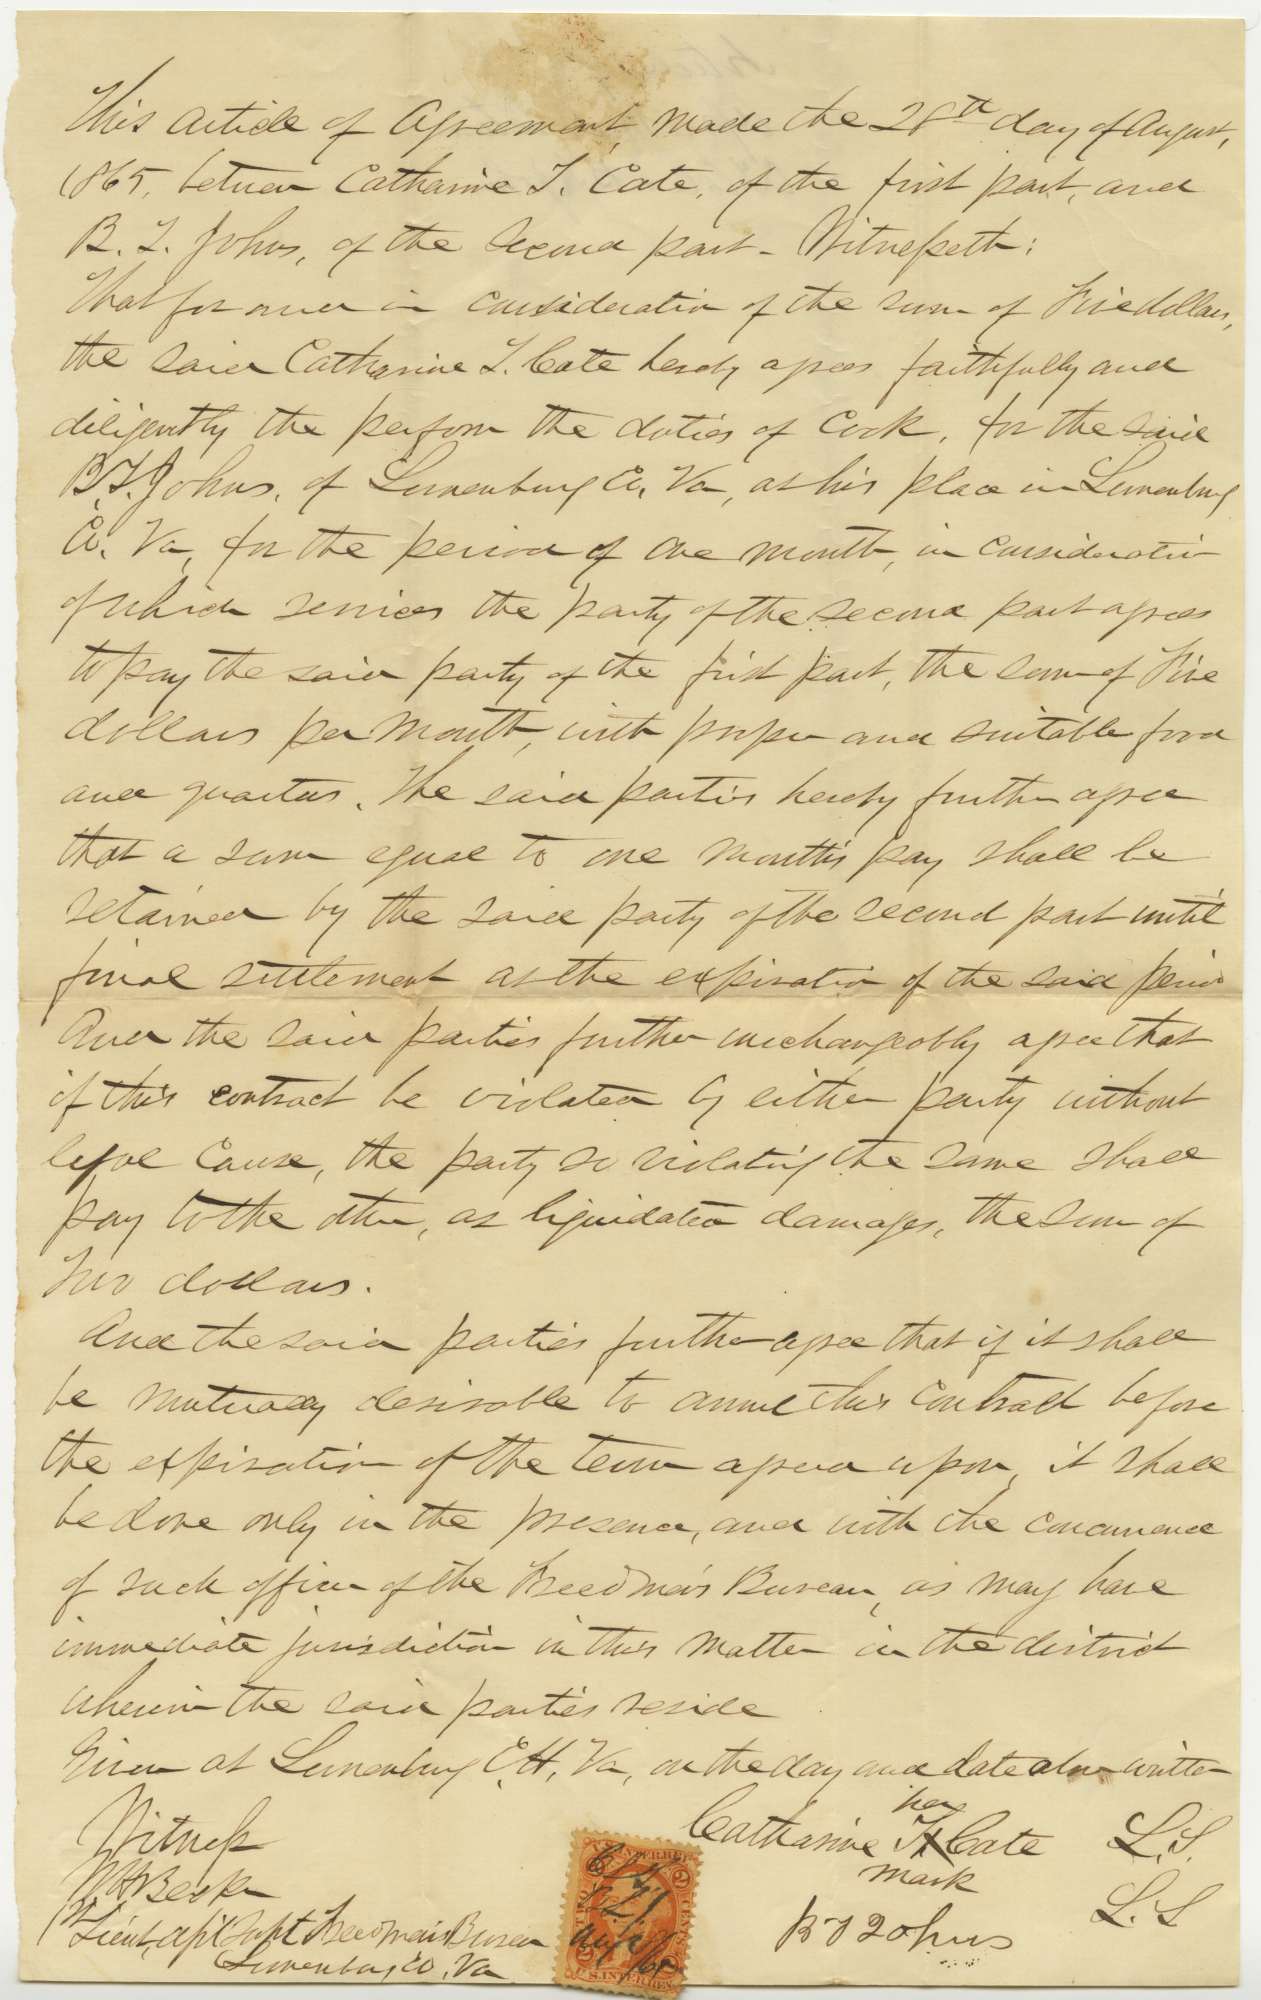 This Article of Agreement, made the 28th day of August,
1865, between Catharine T. Cate, of the first part, and
B. T. Johns, of the second part - Witnesseth:
That for and in consideration of the sum of Five dollars,
the said Catharine T. Cate hereby agrees faithfully and
diligently the perform the duties of Cook, for the said
B. T. Johns, of Lunenburg Co. Va, at his place in Lunenburg
Co. Va, for the period of one month, in consideration
of which services the party of the second part agrees
to pay the said party of the first part, the sum of Five
dollars per month, with proper and suitable food
and quarters. The said parties hereby further agree
that a sum equal to one month's pay shall be
retained by the said party of the second part until
final settlement at the expiration of the said period
And the said parties further unchangeably agree that
if this contract be violated by either party without
legal cause, the party so violating the same shall
pay to the other, as liquidated damages, the sum of
Two dollars.
And the said parties further agree that if it shall
be mutually desirable to annul this contract before
the expiration of the term agreed upon, it shall
be done only in the presence, and with the concurrence
of such officer of the Freedmen's Bureau, as may have
immediate jurisdiction in this matter in the district
wherein the said parties reside
Given at Lunenburg C.H. Va, on the day and date above written
Witness
Catharine T. her x mark Cate L.S.
B T Johns L.S
1st Lieut, Supt Freedmen's Bureau
Lunenburg Co, Va
2 U.S. INTER. REV. 2